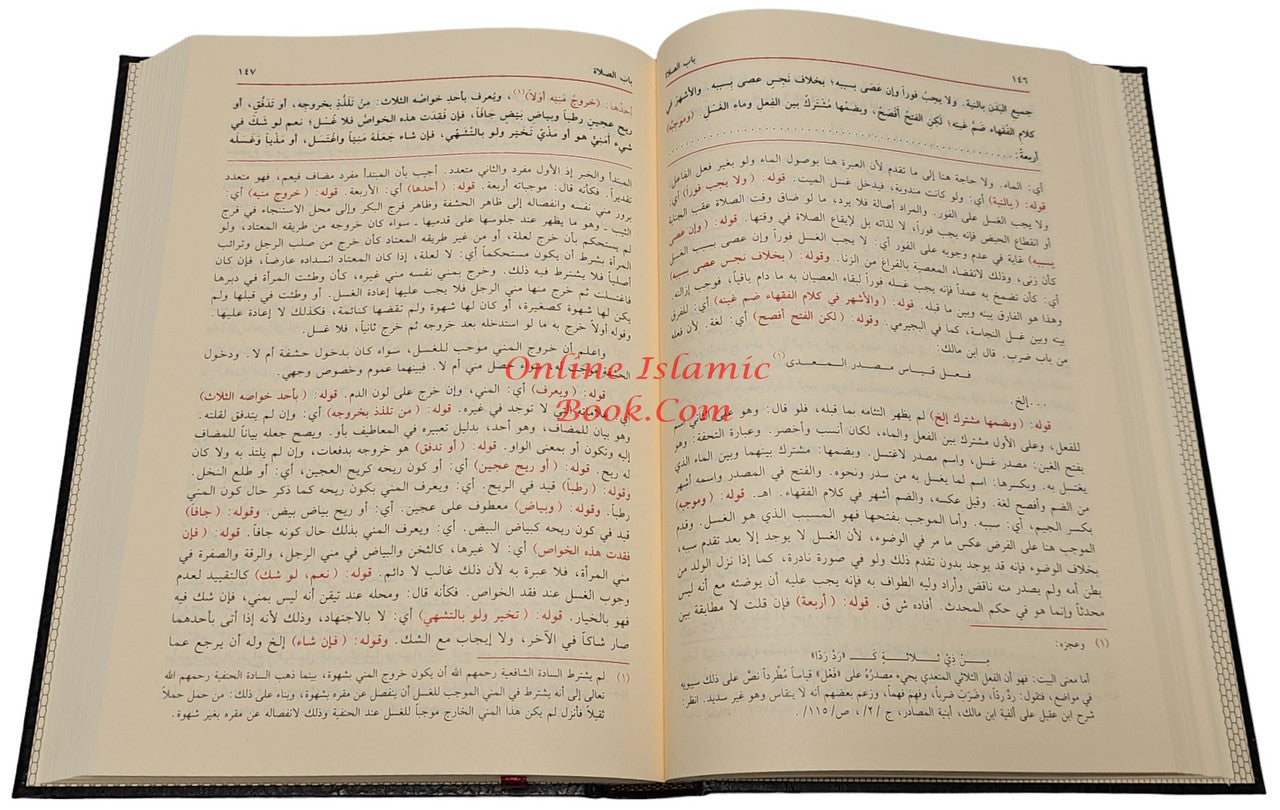 ١٤٦
باب الصلاة
جميع البدن بالنية. ولا يجب فوراً وإن عصى بسببه؛ بخلاف نجس عصى بسببه. والأشهر في
كلام الفقهاء ضم غينه؛ لكن الفتح أفصح، وبضمها مشترك بين الفعل وماء الغسل. (وموجبه)
أربعة:
أي: الماء. ولا حاجة هنا إلى ما تقدم لأن العبرة هنا بوصول الماء ولو بغير فعل الفاعل.
قوله: (بالنية) أي: ولو كانت مندوبة، فيدخل غسل الميت. قوله: (ولا يجب فوراً) أي:
ولا يجب الغسل على الفور. والمراد أصالة فلا يرد، ما لو ضاق وقت الصلاة عقب الجنابة
أو انقطاع الحيض فإنه يجب فوراً، لا لذاته بل لإيقاع الصلاة في وقتها. قوله: (وإن عصى
بسببه) غاية في عدم وجوبه على الفور أي: لا يجب الغسل فوراً وإن عصى بسبب الغسل
كأن زنى، وذلك لانقضاء المعصية بالفراغ من الزنا. وقوله: (بخلاف نجس عصى بسببه)
أي: كأن تضمخ به عمداً فإنه يجب غسله فوراً لبقاء العصيان به ما دام باقياً، فوجب إزالته.
وهذا هو الفارق بينه وبين ما قبله. قوله: (والأشهر في كلام الفقهاء ضم غينه) أي: للفرق
بينه وبين غسل النجاسة، كما في البجيرمي. وقوله: (لكن الفتح أفصح) أي: لغة. لأن فعله
من باب ضرب. قال ابن مالك:
فعل قياس مصدر المعدى (١)
... إلخ.
قوله: (وبضمها مشترك إلخ) لم يظهر التئامه بما قبله، فلو قال: وهو على الثاني اسم
للفعل، وعلى الأول مشترك بين الفعل والماء، لكان أنسب وأخصر. وعبارة التحفة: وهو
بفتح الغين: مصدر غسل، واسم مصدر لاغتسل. وبضمها: مشترك بينهما وبين الماء الذي
يغتسل به. وبكسرها: اسم لما يغسل به من سدر ونحوه. والفتح في المصدر واسمه أشهر
من الضم وأفصح لغة. وقيل عكسه، والضم أشهر في كلام الفقهاء. اهـ. قوله: (وموجبه)
بكسر الجيم، أي: سببه. وأما الموجب بفتحها فهو المسبب الذي هو الغسل. وقدم
الموجب هنا على الفرض عكس ما مر في الوضوء، لأن الغسل لا يوجد إلا بعد تقدم سببه،
بخلاف الوضوء فإنه قد يوجد بدون تقدم ذلك ولو في صورة نادرة، كما إذا نزل الولد من
بطن أمه ولم يصدر منه ناقض وأراد وليه الطواف به فإنه يجب عليه أن يوضئه مع أنه ليس
محدثاً وإنما هو في حكم المحدث. أفاده ش ق. قوله: (أربعة) فإن قلت لا مطابقة بين
(١) وعجزه:
مِنْ ذِي ثَلاثَةٍ كَـ «رَدَّ رَدًّا»
أما معنى البيت: فهو أن الفعل الثلاثي المتعدي يجيء مصدرُهُ على «فَعْل» قياساً مُطَّرداً نصَّ على ذلك سيبويه
في مواضع، فتقول: ردَّ ردًّا، وضَرَبَ ضرباً، وفَهِمَ فهماً، وزعم بعضهم أنه لا ينقاس وهو غير سديد. انظر:
شرح ابن عقيل على ألفية ابن مالك، أبنية المصادر، ج /٢/، ص/١١٥/.
باب الصلاة
١٤٧
أحدُها: (خروجُ مَنيِّه أوّلاً)(١)، ويُعرف بأحدِ خواصِّه الثلاث: مِنْ تَلَذُّذٍ بخروجِه، أو تَدَفُّقٍ، أو
ريح عجينٍ رطباً وبياض بَيْضٍ جَافّاً، فإن فُقِدت هذه الخواصُّ فلا غُسل؛ نعم لو شكَّ في
شيء أمَنيٌّ هو أو مَذْيٌ تَخَيَّر ولو بالتَّشهِّي، فإن شاء جَعَلَهُ مَنيّاً واغتسل، أو مَذْياً وغَسَلَه
المبتدأ والخبر إذ الأول مفرد والثاني متعدد. أجيب بأن المبتدأ مفرد مضاف فيعم، فهو متعدد
تقديراً. فكأنه قال: موجباته أربعة. قوله: (أحدها) أي: الأربعة. قوله: (خروج منيه) أي:
بروز مني نفسه وانفصاله إلى ظاهر الحشفة وظاهر فرج البكر وإلى محل الاستنجاء في فرج
الثيب ـ وهو ما يظهر عند جلوسها على قدميها ـ سواء كان خروجه من طريقه المعتاد، ولو
لم يستحكم بأن خرج لعلة، أو من غير طريقه المعتاد كأن خرج من صلب الرجل وترائب
المرأة بشرط أن يكون مستحكماً أي: لا لعلة، إذا كان المعتاد انسداده عارضاً، فإن كان
أصلياً فلا يشترط فيه ذلك. وخرج بمني نفسه مني غيره، كأن وطئت المرأة في دبرها
فاغتسلت ثم خرج منها مني الرجل فلا يجب عليها إعادة الغسل. أو وطئت في قبلها ولم
يكن لها شهوة كصغيرة، أو كان لها شهوة ولم تقضها كنائمة، فكذلك لا إعادة عليها.
وقوله أولاً خرج به ما لو استدخله بعد خروجه ثم خرج ثانياً، فلا غسل.
واعلم أن خروج المني موجب للغسل، سواء كان بدخول حشفة أم لا. ودخول
الحشفة موجب له سواء حصل مني أم لا. فبينهما عموم وخصوص وجهي.
قوله: (ويعرف) أي: المني، وإن خرج على لون الدم. قوله: (بأحد خواصه الثلاث)
أي: علاماته التي لا توجد في غيره. قوله: (من تلذذ بخروجه) أي: وإن لم يتدفق لقلته.
وهو بيان للمضاف، وهو أحد، بدليل تعبيره في المعاطيف بأو. ويصح جعله بياناً للمضاف
إليه وتكون أو بمعنى الواو. قوله: (أو تدفق) هو خروجه بدفعات، وإن لم يلتذ به ولا كان
له ريح. قوله: (أو ريح عجين) أي: أو كون ريحه كريح العجين، أي: أو طلع النخل.
وقوله: (رطباً) قيد في الريح. أي: ويعرف المني بكون ريحه كما ذكر حال كون المني
رطباً. وقوله: (وبياض) معطوف على عجين. أي: أو ريح بياض بيض. وقوله: (جافاً)
قيد في كون ريحه كبياض البيض. أي: ويعرف المني بذلك حال كونه جافاً. قوله: (فإن
فقدت هذه الخواص) أي: لا غيرها، كالثخن والبياض في مني الرجل، والرقة والصفرة في
مني المرأة، فلا عبرة به لأن ذلك غالب لا دائم. قوله: (نعم، لو شك) كالتقييد لعدم
وجوب الغسل عند فقد الخواص. فكأنه قال: ومحله عند تيقن أنه ليس بمني، فإن شك فيه
فهو بالخيار. قوله: (تخير ولو بالتشهي) أي: لا بالاجتهاد، وذلك لأنه إذا أتى بأحدهما
صار شاكاً في الآخر، ولا إيجاب مع الشك. وقوله: (فإن شاء) إلخ وله أن يرجع عما
(١) لم يشترط السادة الشافعية رحمهم الله أن يكون خروج المني بشهوة، بينما ذهب السادة الحنفية رحمهم الله
تعالى إلى أنه يشترط في المني الموجب للغسل أن ينفصل عن مقره بشهوة، وبناء على ذلك: من حمل حملاً
ثقيلاً فأنزل لم يكن هذا المني الخارج موجباً للغسل عند الحنفية وذلك لانفصاله عن مقره بغير شهوة.
Online Islamic
Book.Com